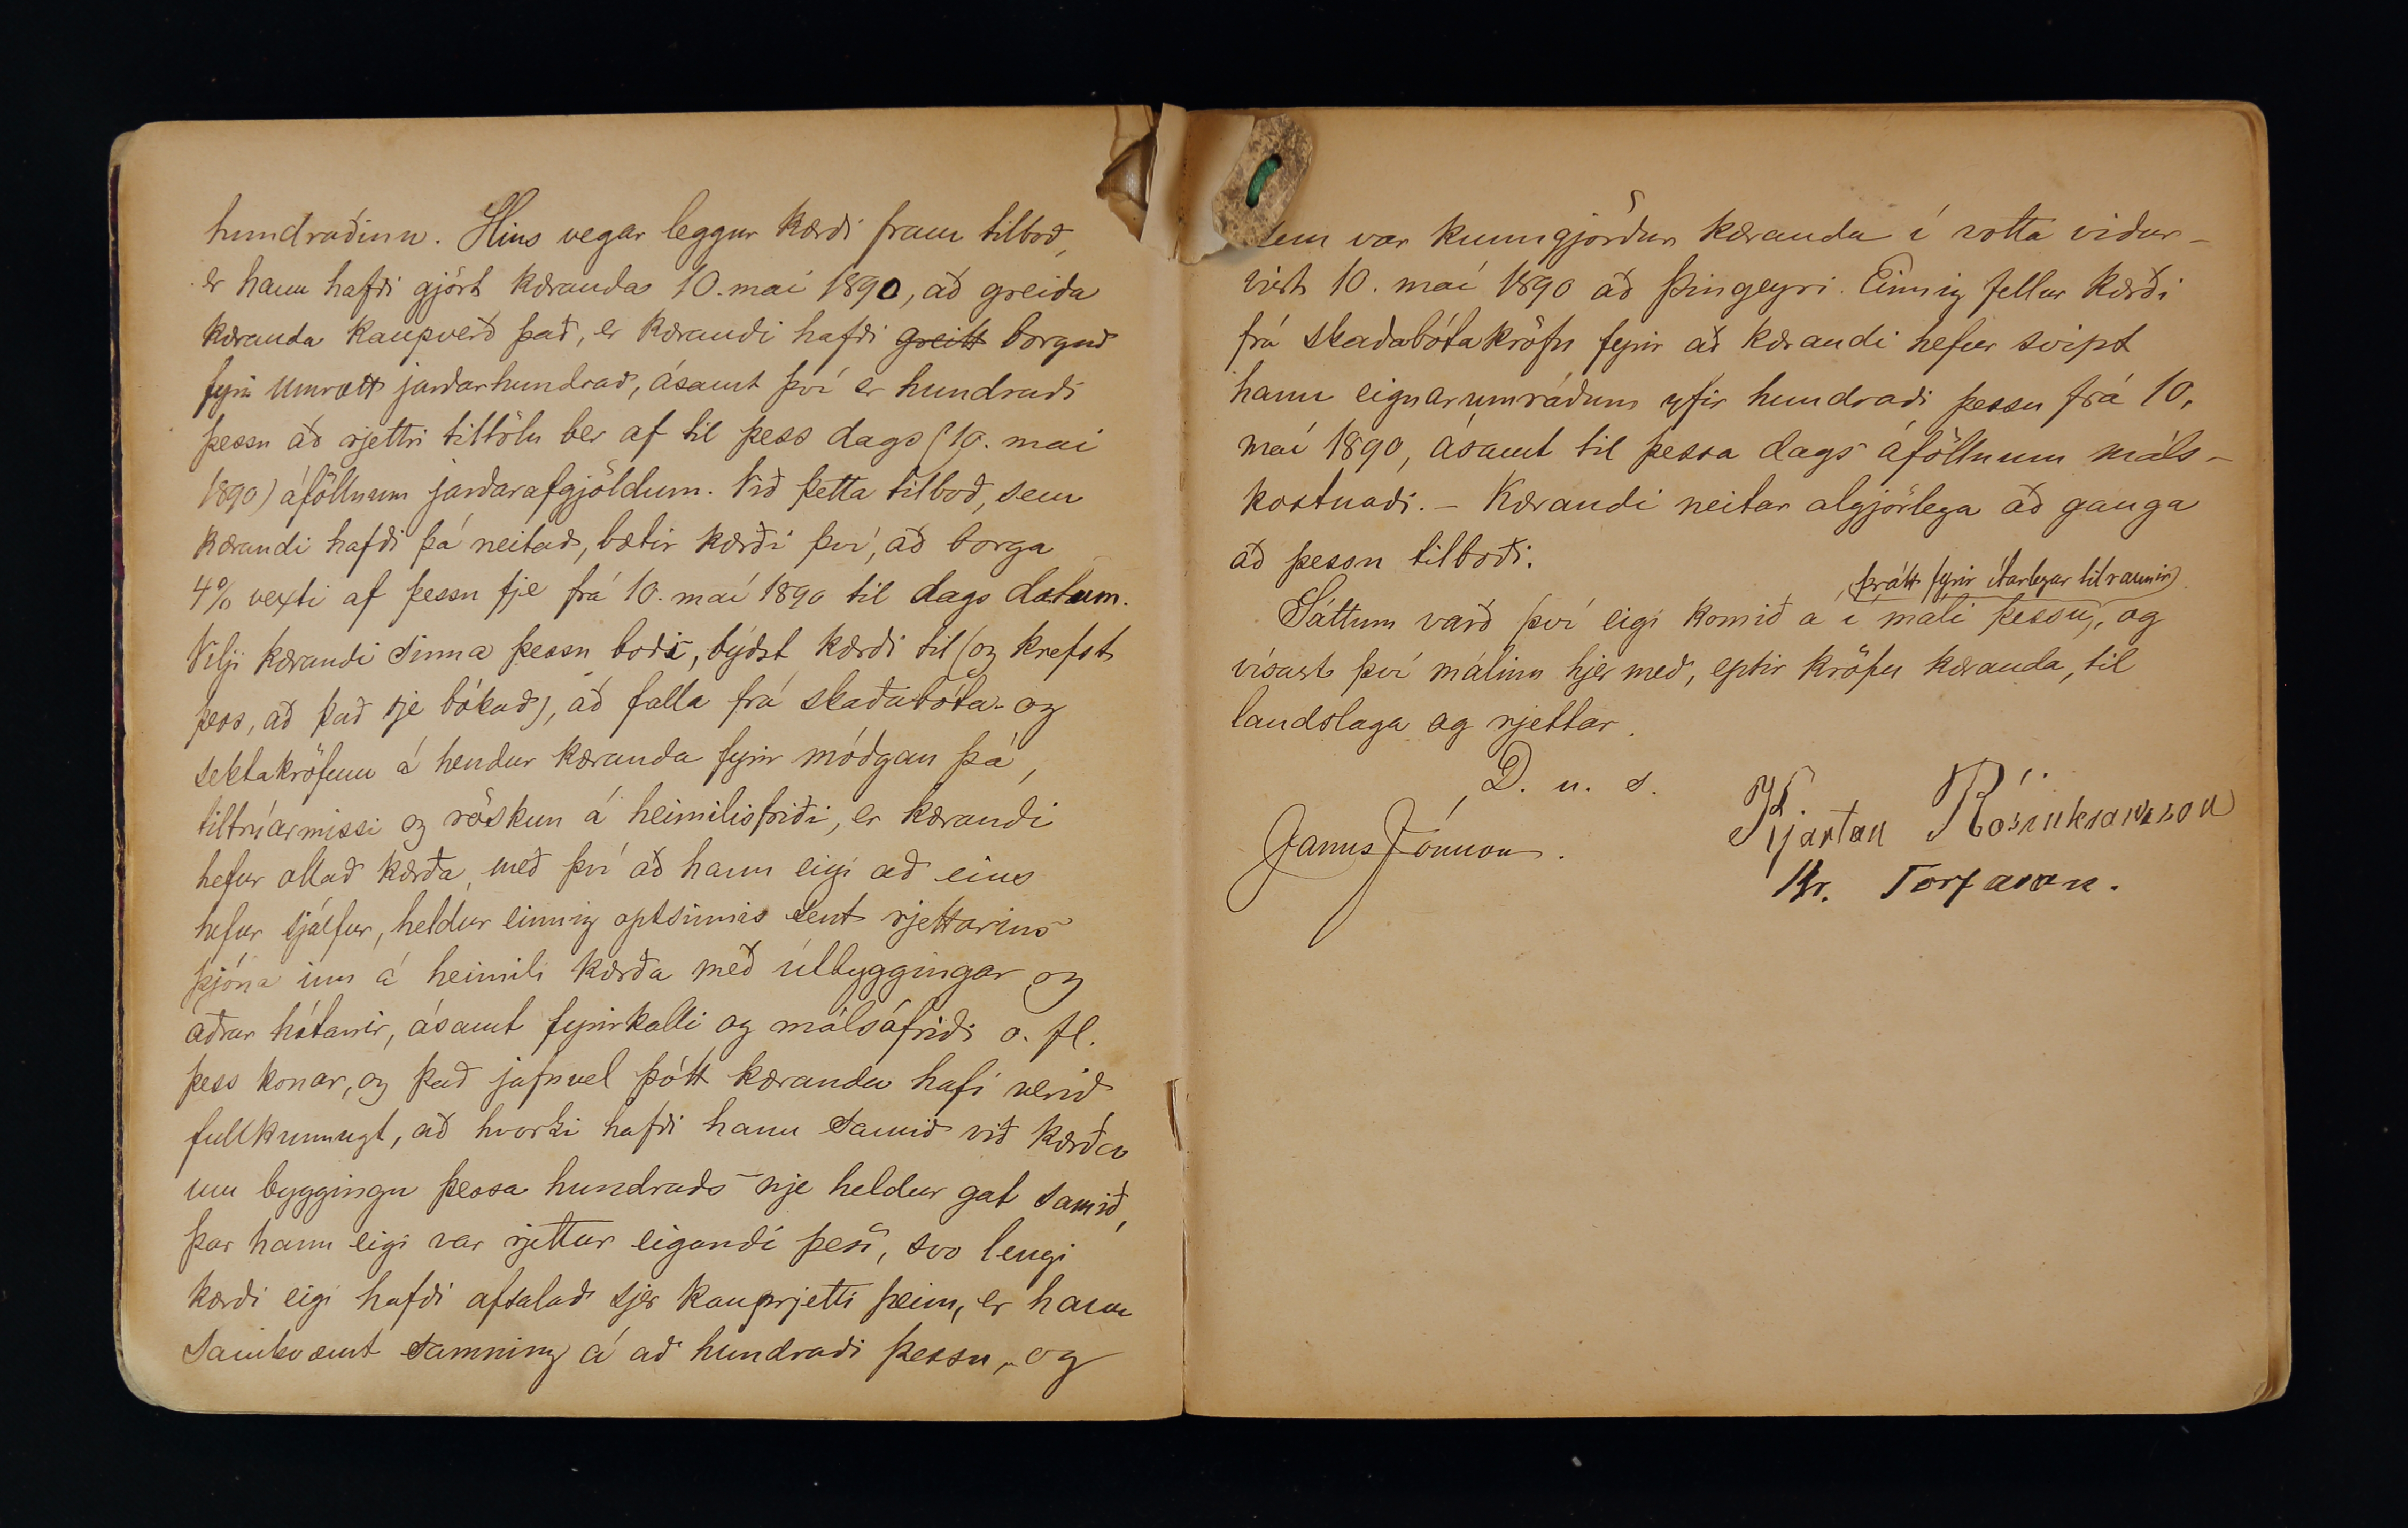 hundraðinn. Hins vegar leggur kærði fram tilboð,
er hann hafði gjört kæranda 10. maí 1890, að greiða
kæranda kaupverð það, er kærandi hafði greitt borgað
fyrir umrætt jarðarhundrað, ásamt því er hundraði
þessu að rjettri tiltölu ber af til þess dags (10. maí
1890) áföllnum jarðarafgjöldum. Við þetta tilboð, sem
kærandi hafði þá neitað, bætir kærði því, að borga
4% vexti af þessu fje frá 10. maí 1890 til dags datum.
Vilji kærandi sinna þessu boði, býðst kærði til (og krefst
þess, að það sje bókað), að falla frá skaðabóta- og
sektakröfum á hendur kæranda fyrir móðgan þá,
tiltrúarmissi og röskun á heimilisfriði, er kærandi
hefur ollað kærða, með því að hann eigi að eins
hefur sjálfur, heldur einnig optsinnis sent rjettarins
þjóna inn á heimili kærða með útbyggingar og
aðrar hótanir, ásamt fyrirkalli og málsáfriði o. fl.
þess konar, og það jafnvel þótt kæranda hafi verið
fullkunnugt, að hvorki hafði hann samið við kærða
um byggingu þessa hundraðs nje heldur gat samið,
þar hann eigi var rjettur eigandi þess, svo lengi
kærði eigi hafði afsalað sjer kauprjetti þeim, er hann
samkvæmt samning á að hundraði þessu, og
sem var kunngjörður kæranda í votta viður-
vist 10. maí 1890 að Þingeyri. Einnig fellur kærði
frá skaðabótakröfu fyrir að kærandi hefur svipt
hann eignarumráðum yfir hundraði þessu frá 10.
maí 1890, ásamt til þessa dags áföllnum máls-
kostnaði. - Kærandi neitar algjörlega að ganga
að þessu tilboði.
, þrátt fyrir ítarlegar tilraunir
Sáttum varð því eigi komið á í máli þessu, og
vísast því málinu hjer með, eptir kröfu kæranda, til
landslaga og rjettar.
D. u. s.
Janus Jónsson.
Kjartan Rósinkransson
Kr. Torfason.